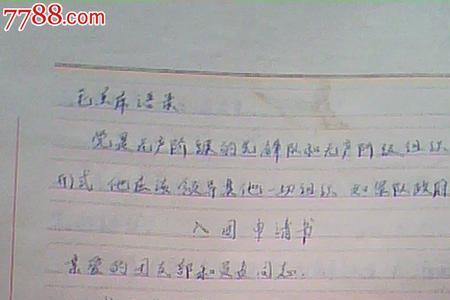 7788.com
毛主席语录
党是无产阶级的先锋队和无产阶级组织
形式 他应该领导其他一切组织 如军队政府
入团申请书
亲爱的团支部和团支同志.